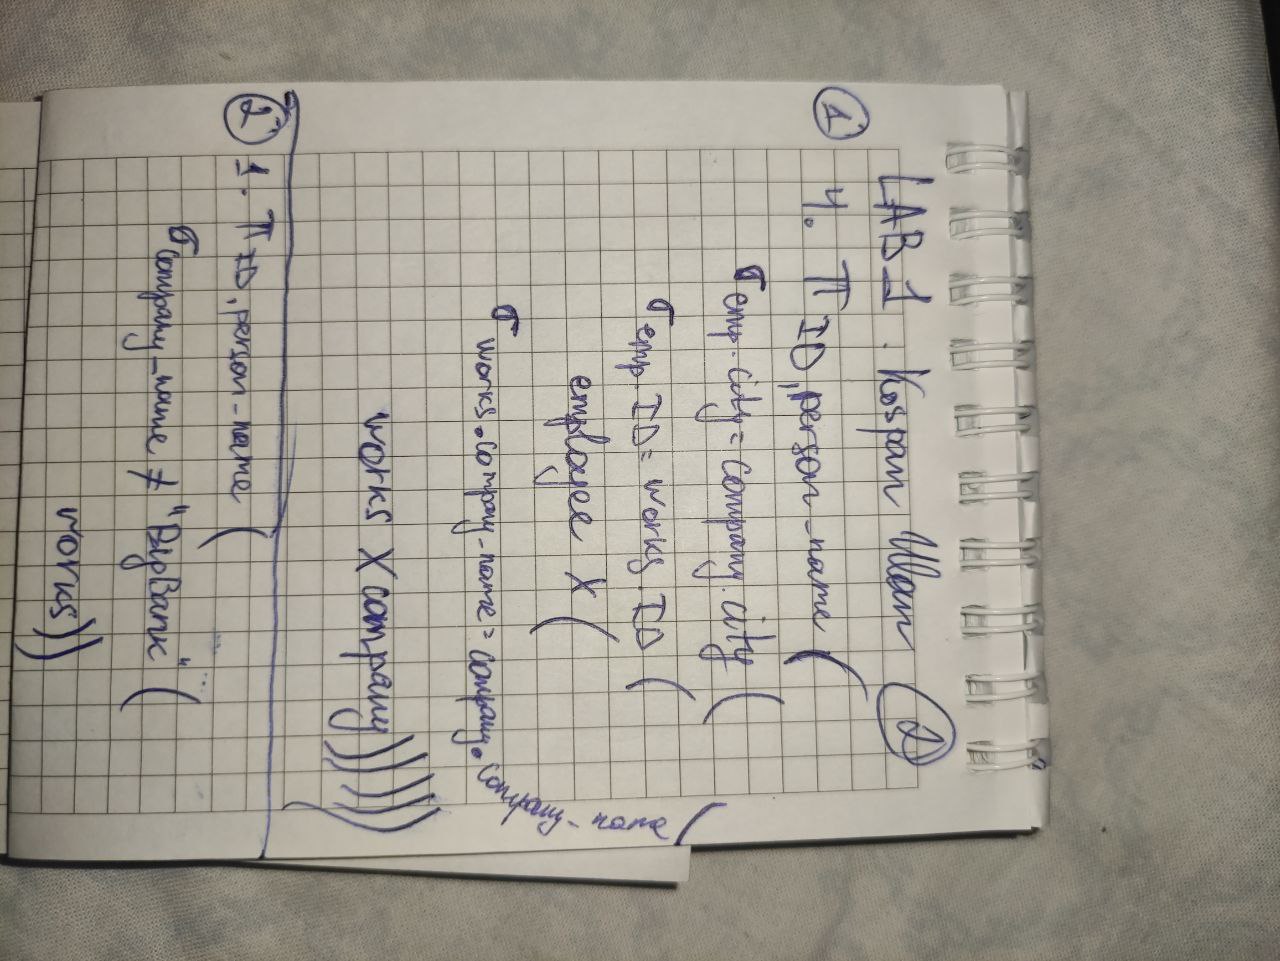 LAB 1. Kospan Ulan 2
1 4. π ID, person_name (
σ emp.city = company.city (
σ emp.ID = works.ID (
employee X (
σ works.company_name = company.company_name (
works X company))))))
2 1. π ID, person_name (
σ company_name ≠ "BigBank" (
works))